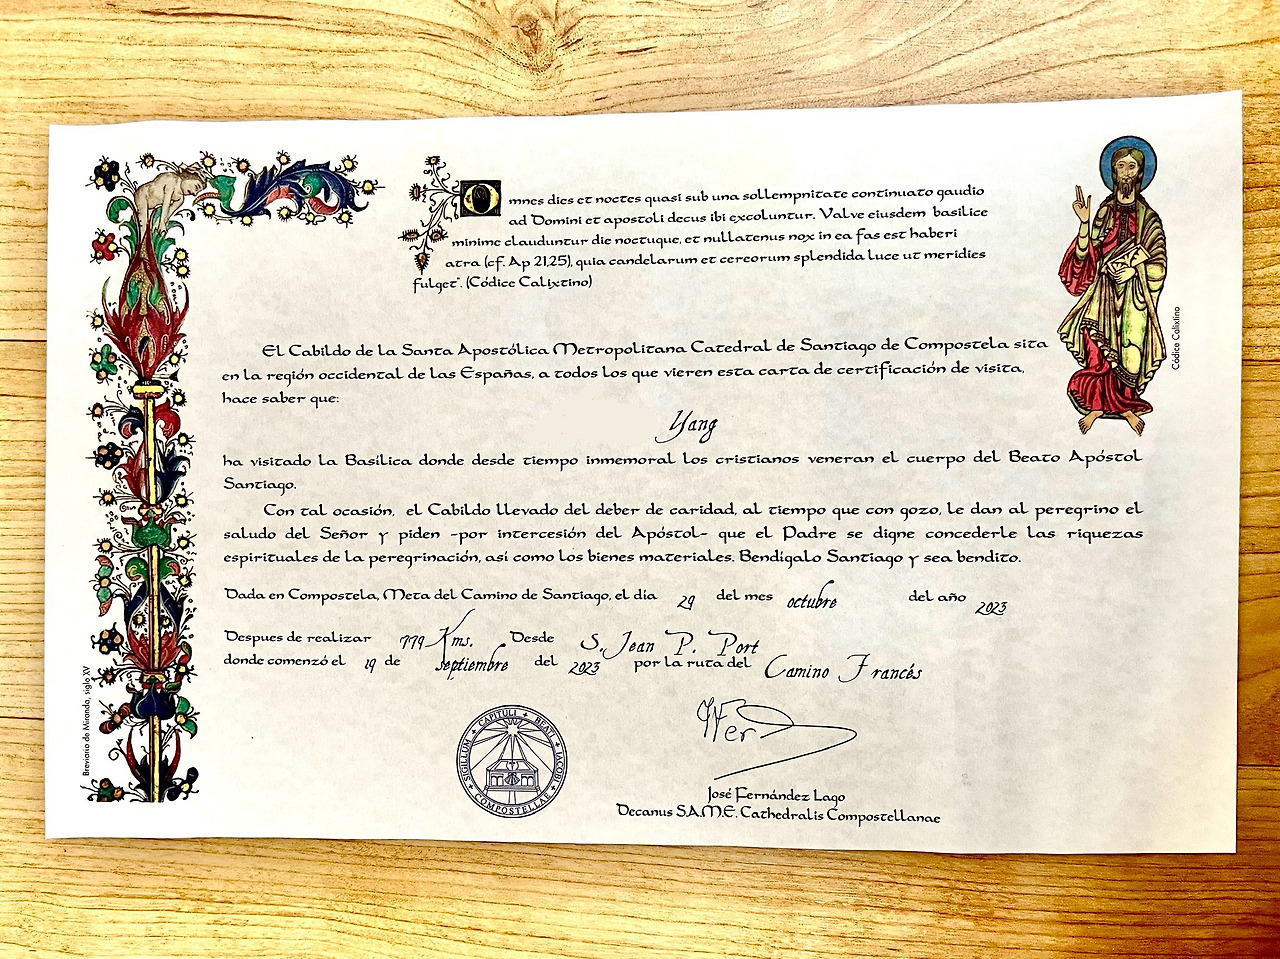 Omnes dies et noctes quasi sub una sollempnitate continuato gaudio
ad Domini et apostoli decus ibi excoluntur. Valve eiusdem basilice
minime clauduntur die noctuque, et nullatenus nox in ea fas est haberi
atra (cf. Ap 21,25), quia candelarum et cereorum splendida luce ut meridies
fulget". (Códice Calixtino)
Códice Calixtino
El Cabildo de la Santa Apostólica Metropolitana Catedral de Santiago de Compostela sita
en la región occidental de las Españas, a todos los que vieren esta carta de certificación de visita,
hace saber que:
Yang
ha visitado la Basílica donde desde tiempo inmemoral los cristianos veneran el cuerpo del Beato Apóstol
Santiago.
Con tal ocasión, el Cabildo llevado del deber de caridad, al tiempo que con gozo, le dan al peregrino el
saludo del Señor y piden -por intercesión del Apóstol- que el Padre se digne concederle las riquezas
espirituales de la peregrinación, así como los bienes materiales. Bendígalo Santiago y sea bendito.
Dada en Compostela, Meta del Camino de Santiago, el dia 29 del mes octubre del año 2023
Despues de realizar 779 Kms. Desde S. Jean P. Port
donde comenzó el 19 de septiembre del 2023 por la ruta del Camino Francés
Breviario de Miranda, siglo XV
SIGILLUM CAPITULI BEATI IACOBI COMPOSTELLAE
José Fernández Lago
Decanus S.A.M.E. Cathedralis Compostellanae